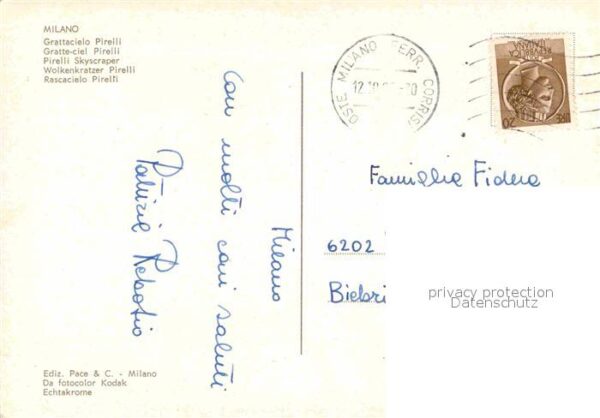 MILANO
Grattacielo Pirelli
Gratte-ciel Pirelli
Pirelli Skyscraper
Wolkenkratzer Pirelli
Rascacielo Pirelli
Milano
Con molti cari saluti
Patrizia
Ediz. Pace & C. - Milano
Da fotocolor Kodak
Echtakrome
POSTE MILANO FERR. CORRISP
Famiglia Fidera
6202
Biebri
privacy protection
Datenschutz